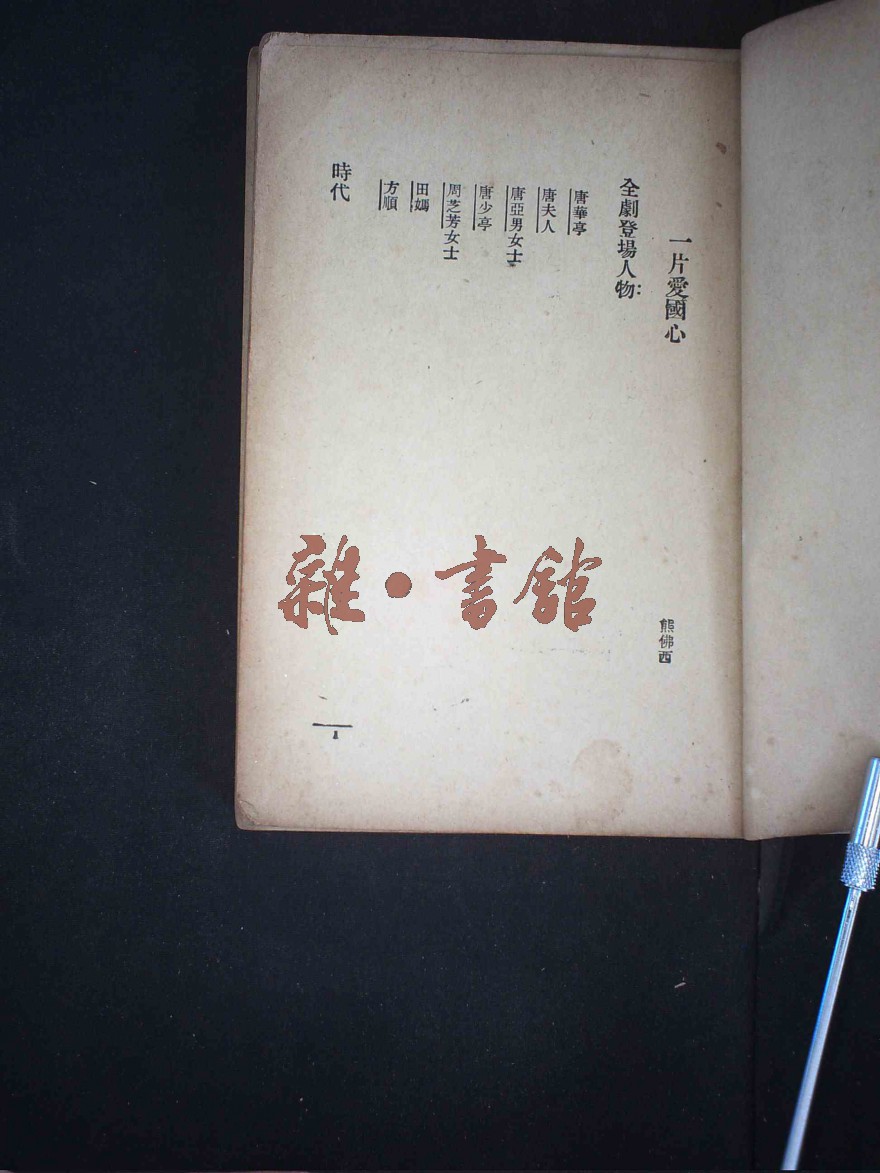 一片愛國心
熊佛西
全劇登場人物：
唐華亭
唐夫人
唐亞男女士
唐少亭
周芝芳女士
田媽
方順
時代
1
雜·書館